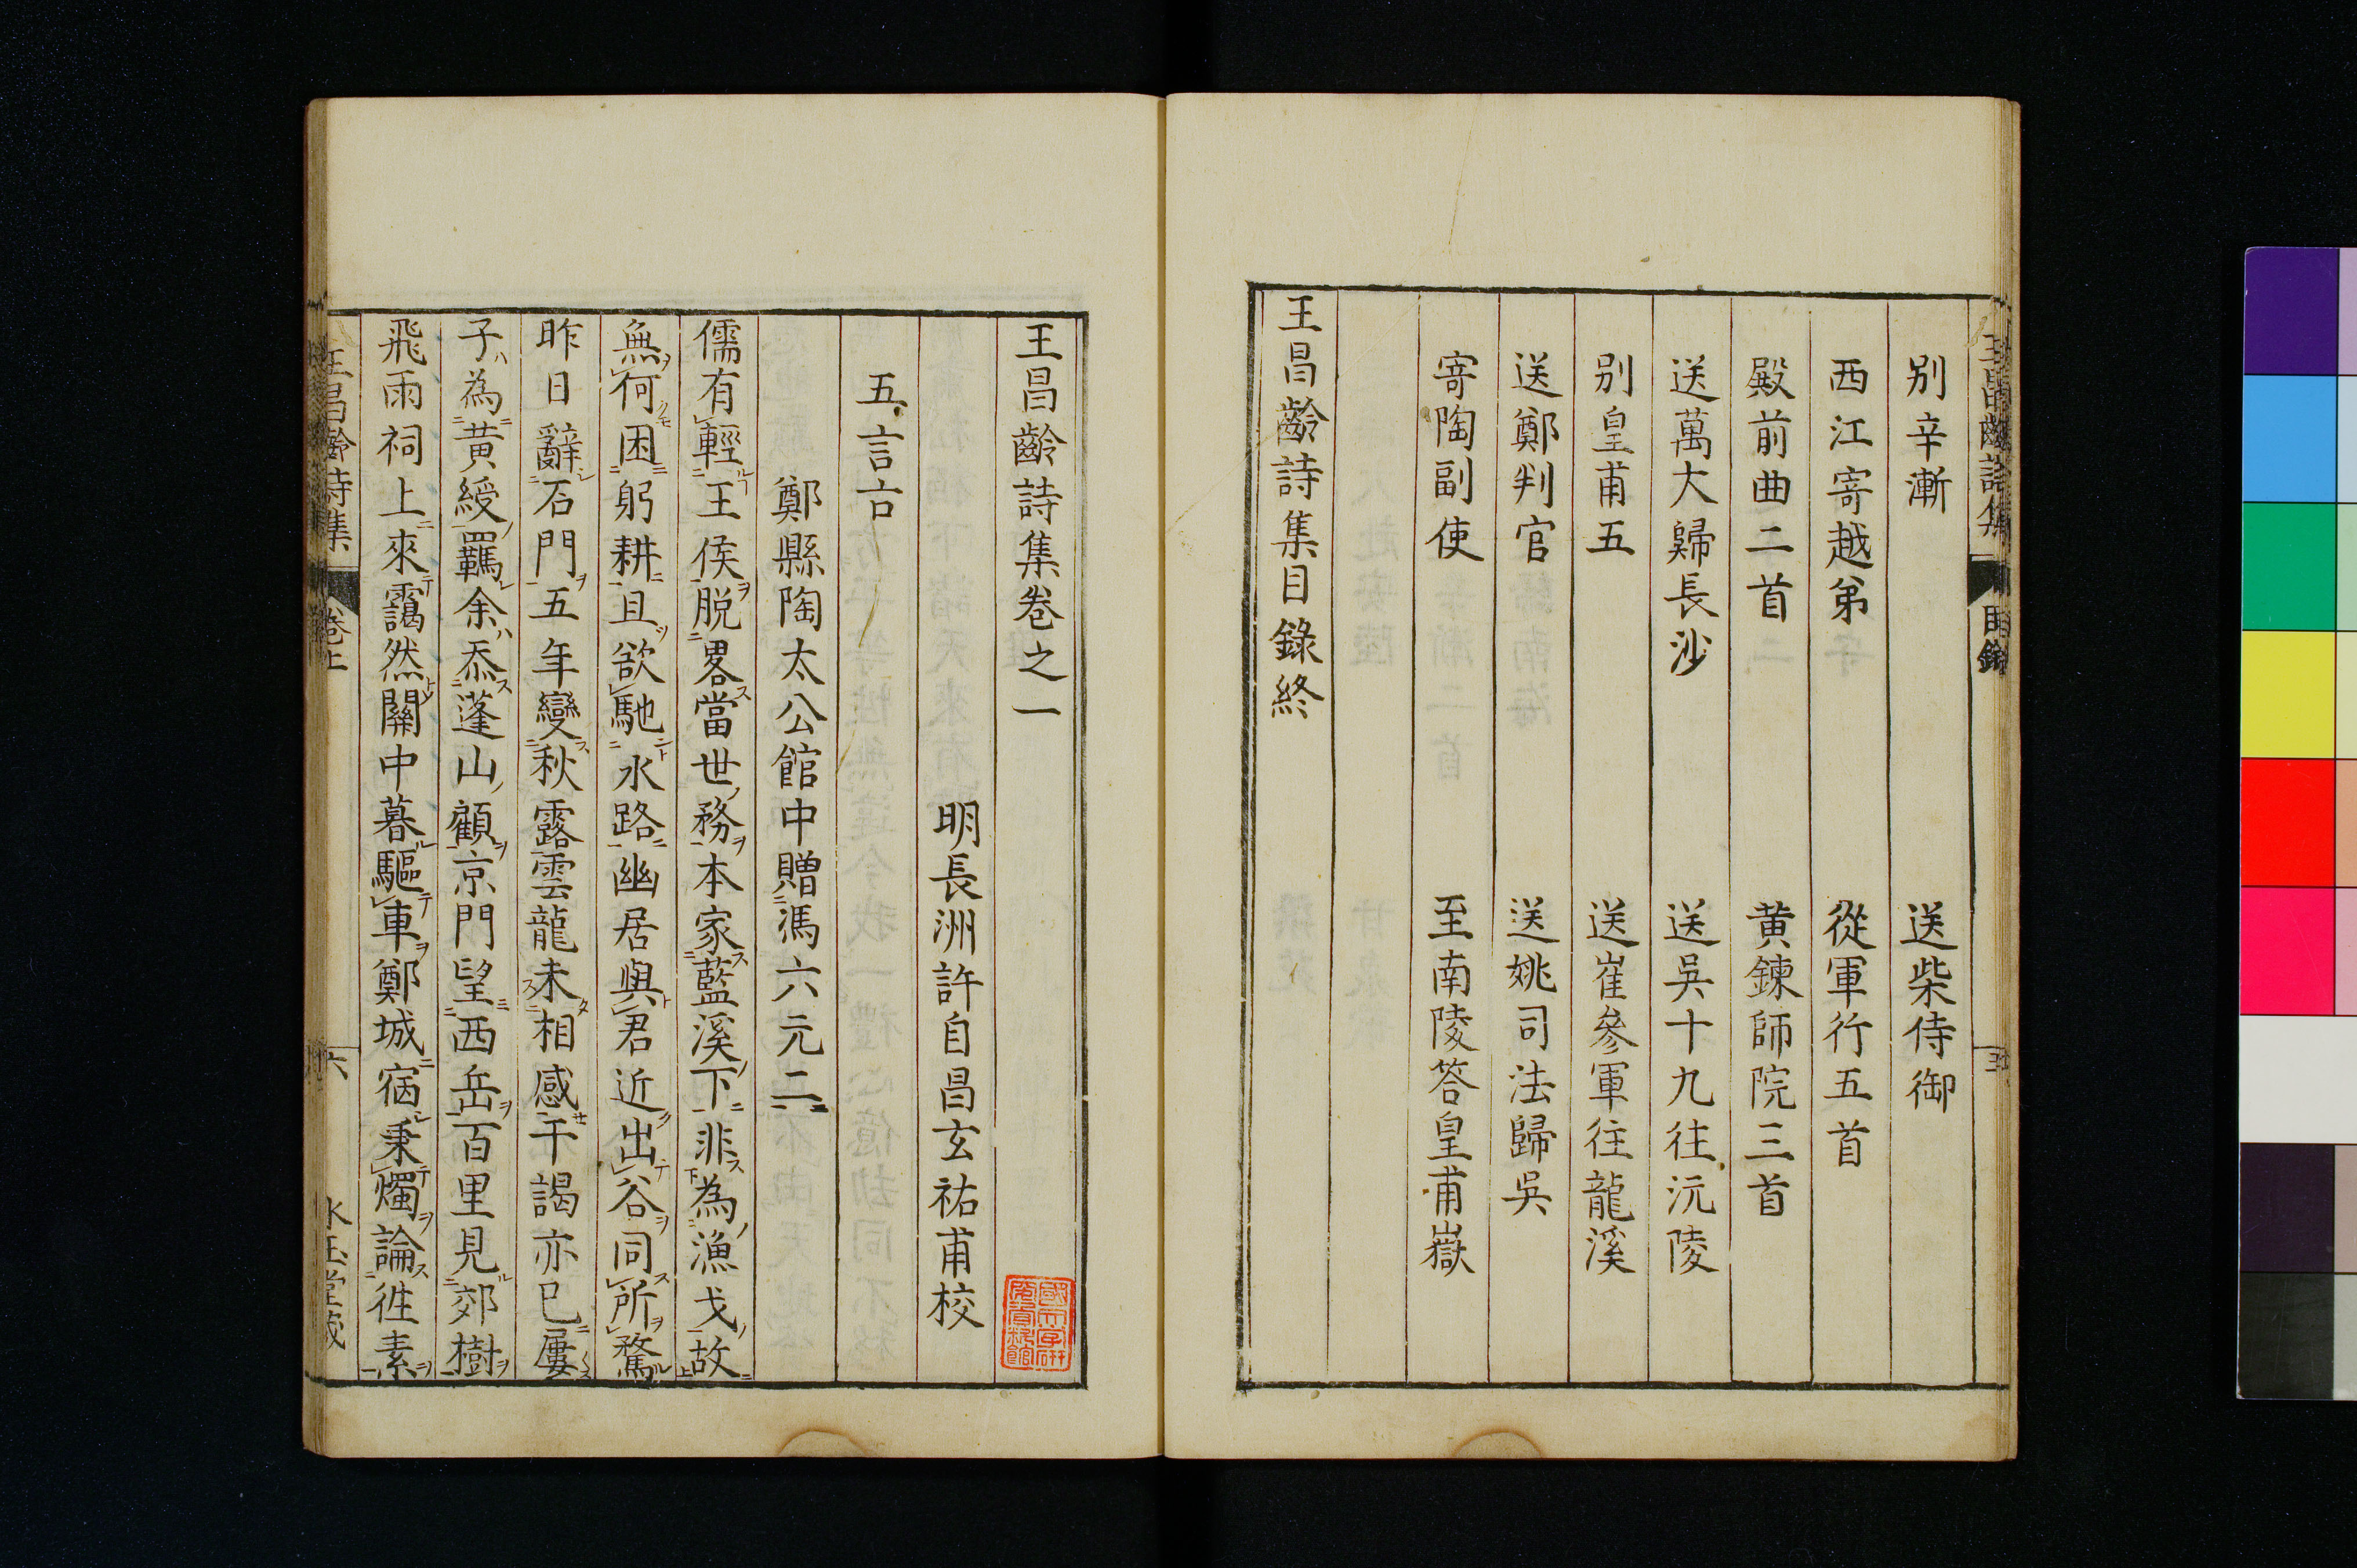 王昌齡詩集
目錄
別辛漸
送柴侍御
西江寄越弟
從軍行五首
殿前曲二首
黄鍊師院三首
送萬大歸長沙
送吳十九往沅陵
別皇甫五
送崔參軍往龍溪
送鄭判官
送姚司法歸吳
寄陶副使
至南陵答皇甫嶽
王昌齡詩集目錄終
王昌齡詩集卷之一
明長洲許自昌玄祐甫校
五言古
鄭縣陶太公館中贈馮六元二
儒有輕王侯脱畧當世務本家藍溪下非為漁弋故
無何困躬耕且欲馳永路幽居與君近出谷同所騖
昨日辭石門五年變秋露雲龍未相感干謁亦已屢
子為黄綬羈余忝蓬山顧京門望西岳百里見郊樹
飛雨祠上來靄然關中暮驅車鄭城宿秉燭論徃素
王昌齡詩集
卷上
六